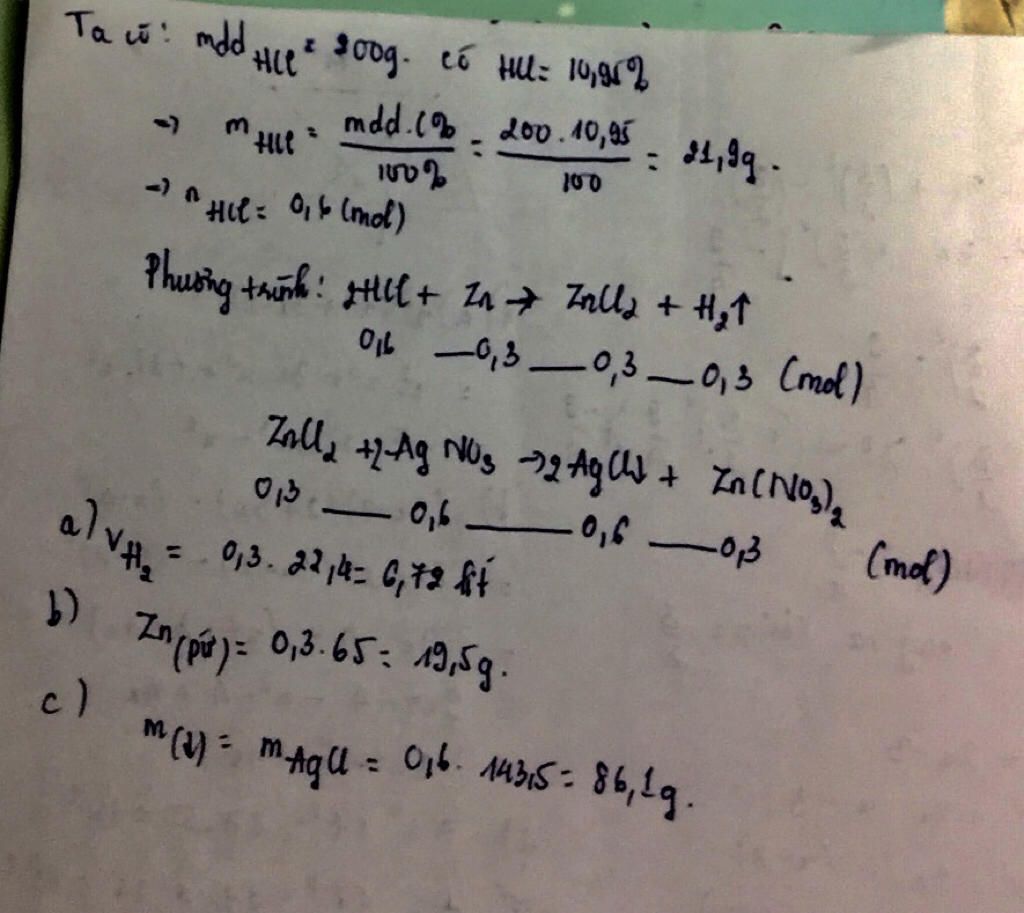 Ta có: mdd HCl = 200g. có HCl = 10,95%
→ mHCl = mdd.C%/100% = 200.10,95/100 = 21,9g.
→ nHCl = 0,6 (mol)
Phương trình: 2HCl + Zn → ZnCl₂ + H₂↑
0,6 — 0,3 — 0,3 — 0,3 (mol)
ZnCl₂ + 2AgNO₃ → 2AgCl↓ + Zn(NO₃)₂
0,3 — 0,6 — 0,6 — 0,3 (mol)
a) VH₂ = 0,3. 22,4 = 6,72 lít
b) Zn(pứ) = 0,3.65 = 19,5g.
c) m(↓) = mAgCl = 0,6. 143,5 = 86,1g.